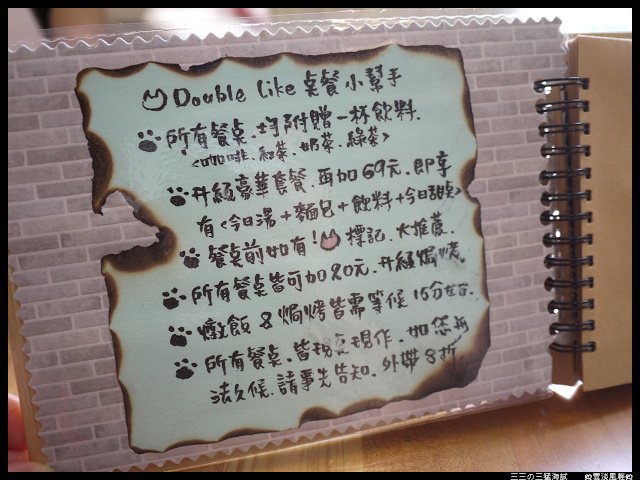 Double Like 桌餐小幫手
所有餐桌.均附贈一杯飲料.
<咖啡.紅茶.奶茶.綠茶>
升級豪華套餐.再加69元.即享
有<今日湯+麵包+飲料+今日甜桌>
餐桌前如有!標記.大推薦.
所有餐桌皆可加20元.升級焗烤.
燉飯&焗烤皆需等候15分左右.
所有餐桌.皆現桌現作.如您無
法久候.請事先告知.外帶8折.
三三の三猛海賊
雲淡風輕